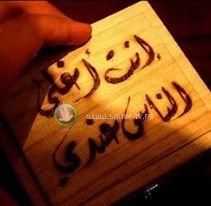 إنت أغلى
الناس عندي
WWW.SALAM-TV.PS